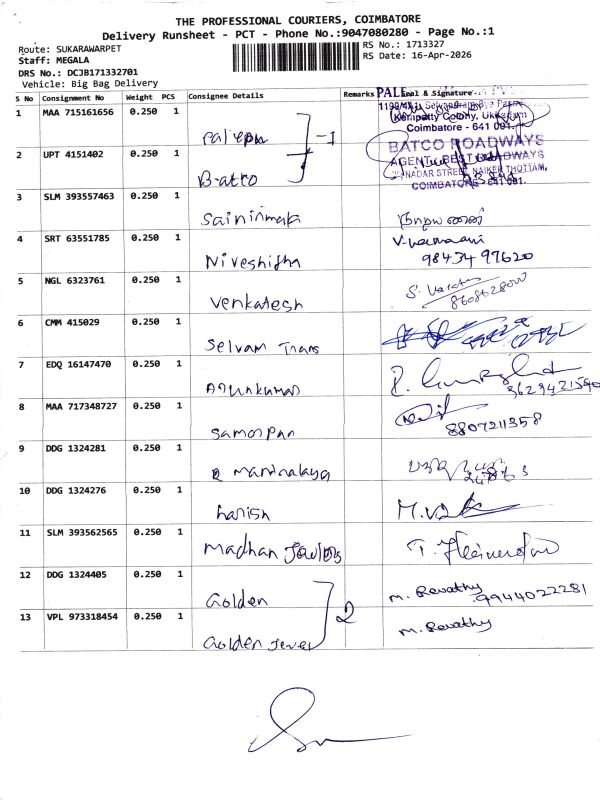 THE PROFESSIONAL COURIERS, COIMBATORE
Delivery Runsheet - PCT - Phone No.:9047080280 - Page No.:1
Route: SUKARAWARPET
RS No.: 1713327
Staff: MEGALA
RS Date: 16-Apr-2026
DRS No.: DCJB171332701
Vehicle: Big Bag Delivery
S No Consignment No Weight PCS Consignee Details Remarks Seal & Signature
1 MAA 715161656 0.250 1
Coimbatore - 641 001.
2 UPT 4151402 0.250 1 Batco
BATCO ROADWAYS
AGENT: BEST ROADWAYS
NADAR STREET, NAIKER THOTTAM,
COIMBATORE - 641 001.
3 SLM 393557463 0.250 1
4 SRT 63551785 0.250 1 Niveshitha
98434 97620
5 NGL 6323761 0.250 1 Venkatesh
6 CMM 415029 0.250 1 Selvam Trans
7 EDQ 16147470 0.250 1 Arunkumar
8 MAA 717348727 0.250 1
8807211358
9 DDG 1324281 0.250 1
10 DDG 1324276 0.250 1 harish
11 SLM 393562565 0.250 1 Madhan
12 DDG 1324405 0.250 1 Golden 2 M. Revathy 9944022281
13 VPL 973318454 0.250 1 Golden Jewel M. Revathy